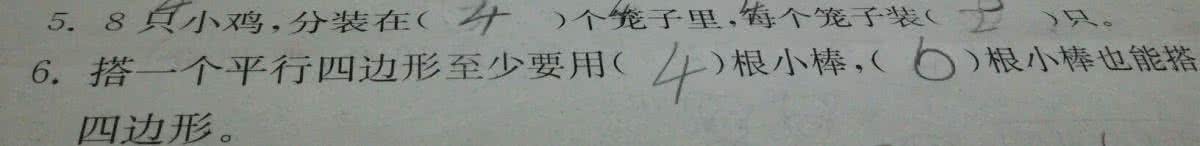 5. 8只小鸡,分装在( 4 )个笼子里,每个笼子装( 2 )只。
6. 搭一个平行四边形至少要用( 4 )根小棒,( 6 )根小棒也能搭
四边形。